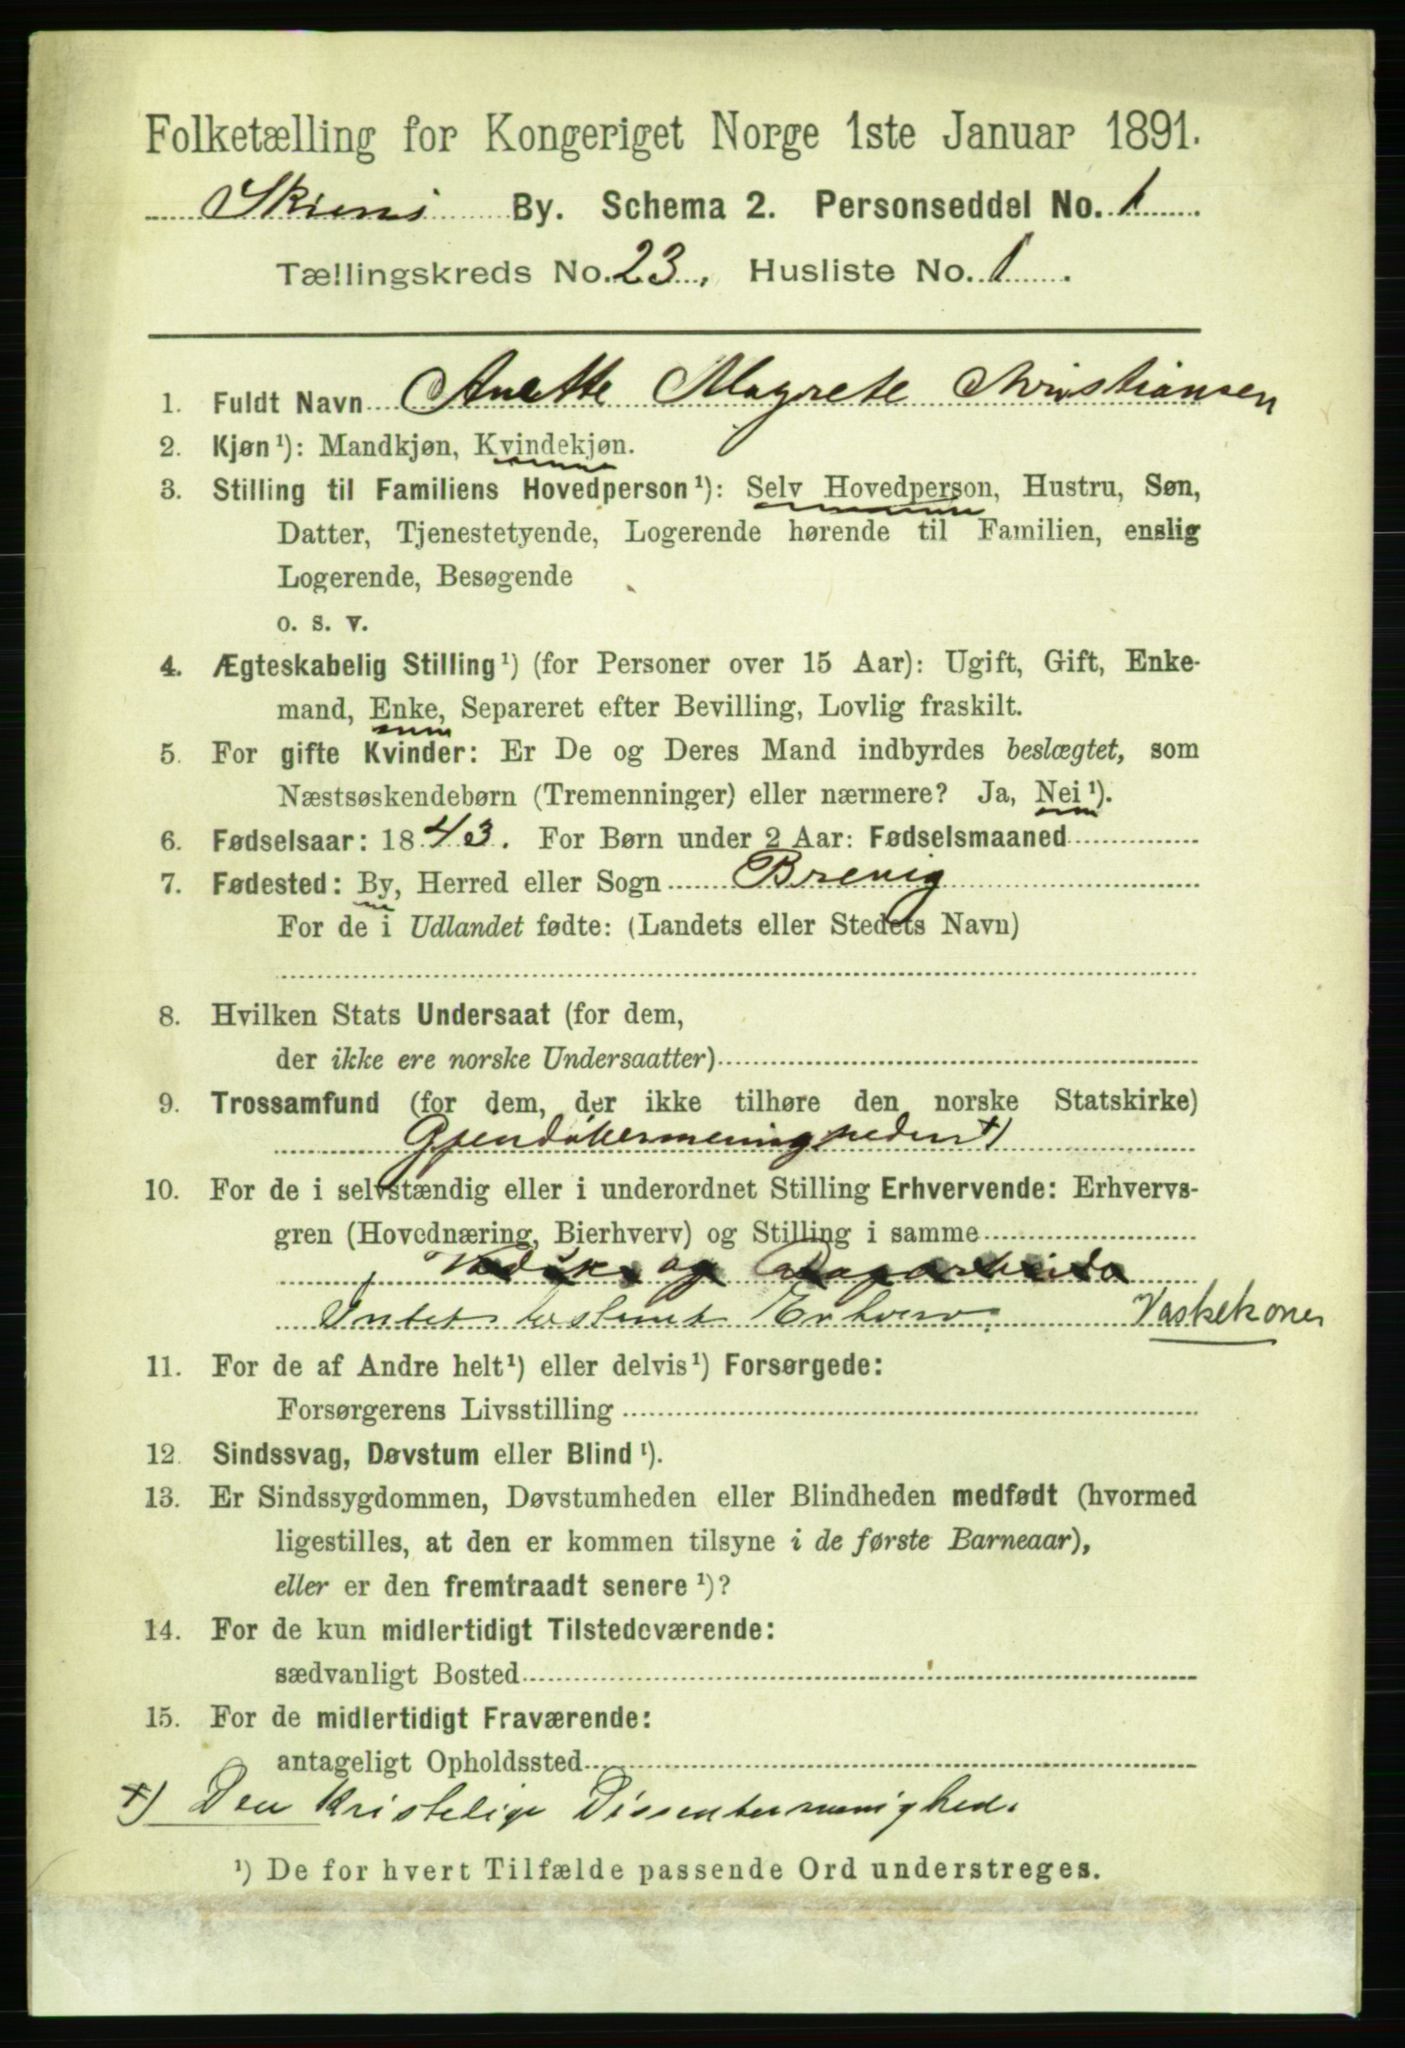 Folketælling for Kongeriget Norge 1ste Januar 1891.
Skiens By. Schema 2. Personseddel No. 1
Tællingskreds No. 23, Husliste No. 1.
1. Fuldt Navn Anette Magrete Christiansen
2. Kjøn ¹): Mandkjøn, Kvindekjøn.
3. Stilling til Familiens Hovedperson ¹): Selv Hovedperson, Hustru, Søn,
Datter, Tjenestetyende, Logerende hørende til Familien, enslig
Logerende, Besøgende
o. s. v.
4. Ægteskabelig Stilling ¹) (for Personer over 15 Aar): Ugift, Gift, Enke-
mand, Enke, Separeret efter Bevilling, Lovlig fraskilt.
5. For gifte Kvinder: Er De og Deres Mand indbyrdes beslægtet, som
Næstsøskendebørn (Tremenninger) eller nærmere? Ja, Nei ¹).
6. Fødselsaar: 1843. For Børn under 2 Aar: Fødselsmaaned
7. Fødested: By, Herred eller Sogn Brevig
For de i Udlandet fødte: (Landets eller Stedets Navn)
8. Hvilken Stats Undersaat (for dem,
der ikke ere norske Undersaatter)
9. Trossamfund (for dem, der ikke tilhøre den norske Statskirke)
+)
10. For de i selvstændig eller i underordnet Stilling Erhvervende: Erhvervs-
gren (Hovednæring, Bierhverv) og Stilling i samme
og
Intet bestemt Erhverv. Vaskekone
11. For de af Andre helt ¹) eller delvis ¹) Forsørgede:
Forsørgerens Livsstilling
12. Sindssvag, Døvstum eller Blind ¹).
13. Er Sindssygdommen, Døvstumheden eller Blindheden medfødt (hvormed
ligestilles, at den er kommen tilsyne i de første Barneaar),
eller er den fremtraadt senere ¹)?
14. For de kun midlertidigt Tilstedeværende:
sædvanligt Bosted
15. For de midlertidigt Fraværende:
antageligt Opholdssted
+) Den kristelige Dissentermenighed.
¹) De for hvert Tilfælde passende Ord understreges.